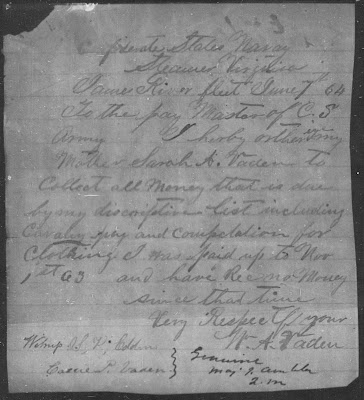 Confederate States Navay
Steamer Virginia
James River fleet June 7 64
To the pay Master of C. S
Army I herby ortherise my
Mother Sarah A. Vaden to
Collect all Money that is due
by my discriptive List including
Cavalry pay and compctation for
Clothing I was paid up to Nov
1st 63 and have Rec no Money
since that time
Very Respectfly your
W. A. Vaden
Witnep
Vaden
Genuine
Maj & 
2. m